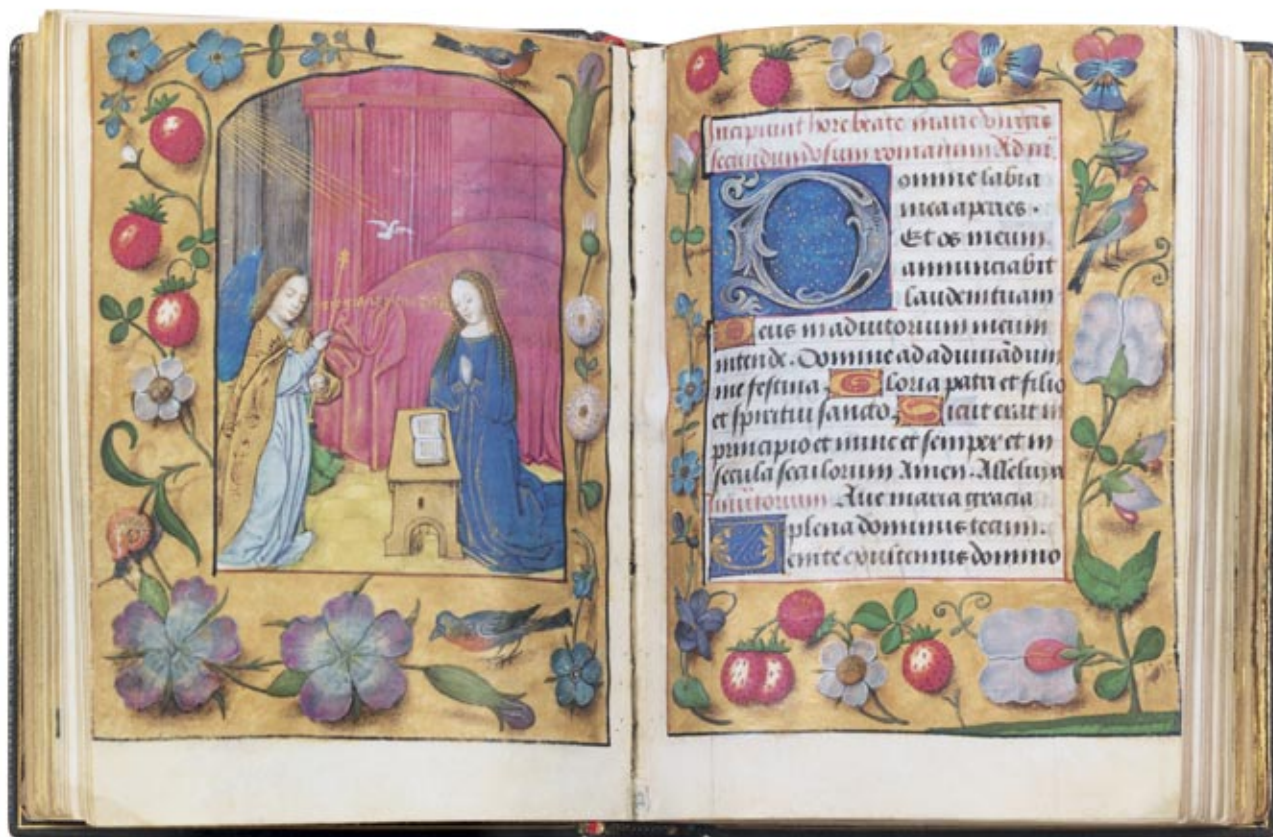 Incipiunt hore beate marie virginis
secundum vsum romanum Ad mt̄.
Domine labia
mea aperies.
Et os meum
annunciabit
laudem tuam
Deus in adiutorium meum
intende. Domine ad adiuuādum
me festina. Gloria patri et filio
et spiritui sancto. Sicut erat in
principio et nunc et semper et in
secula seculorum Amen. Alleluia
Aue maria gracia
plena dominus tecum.
Uenite exultemus domino